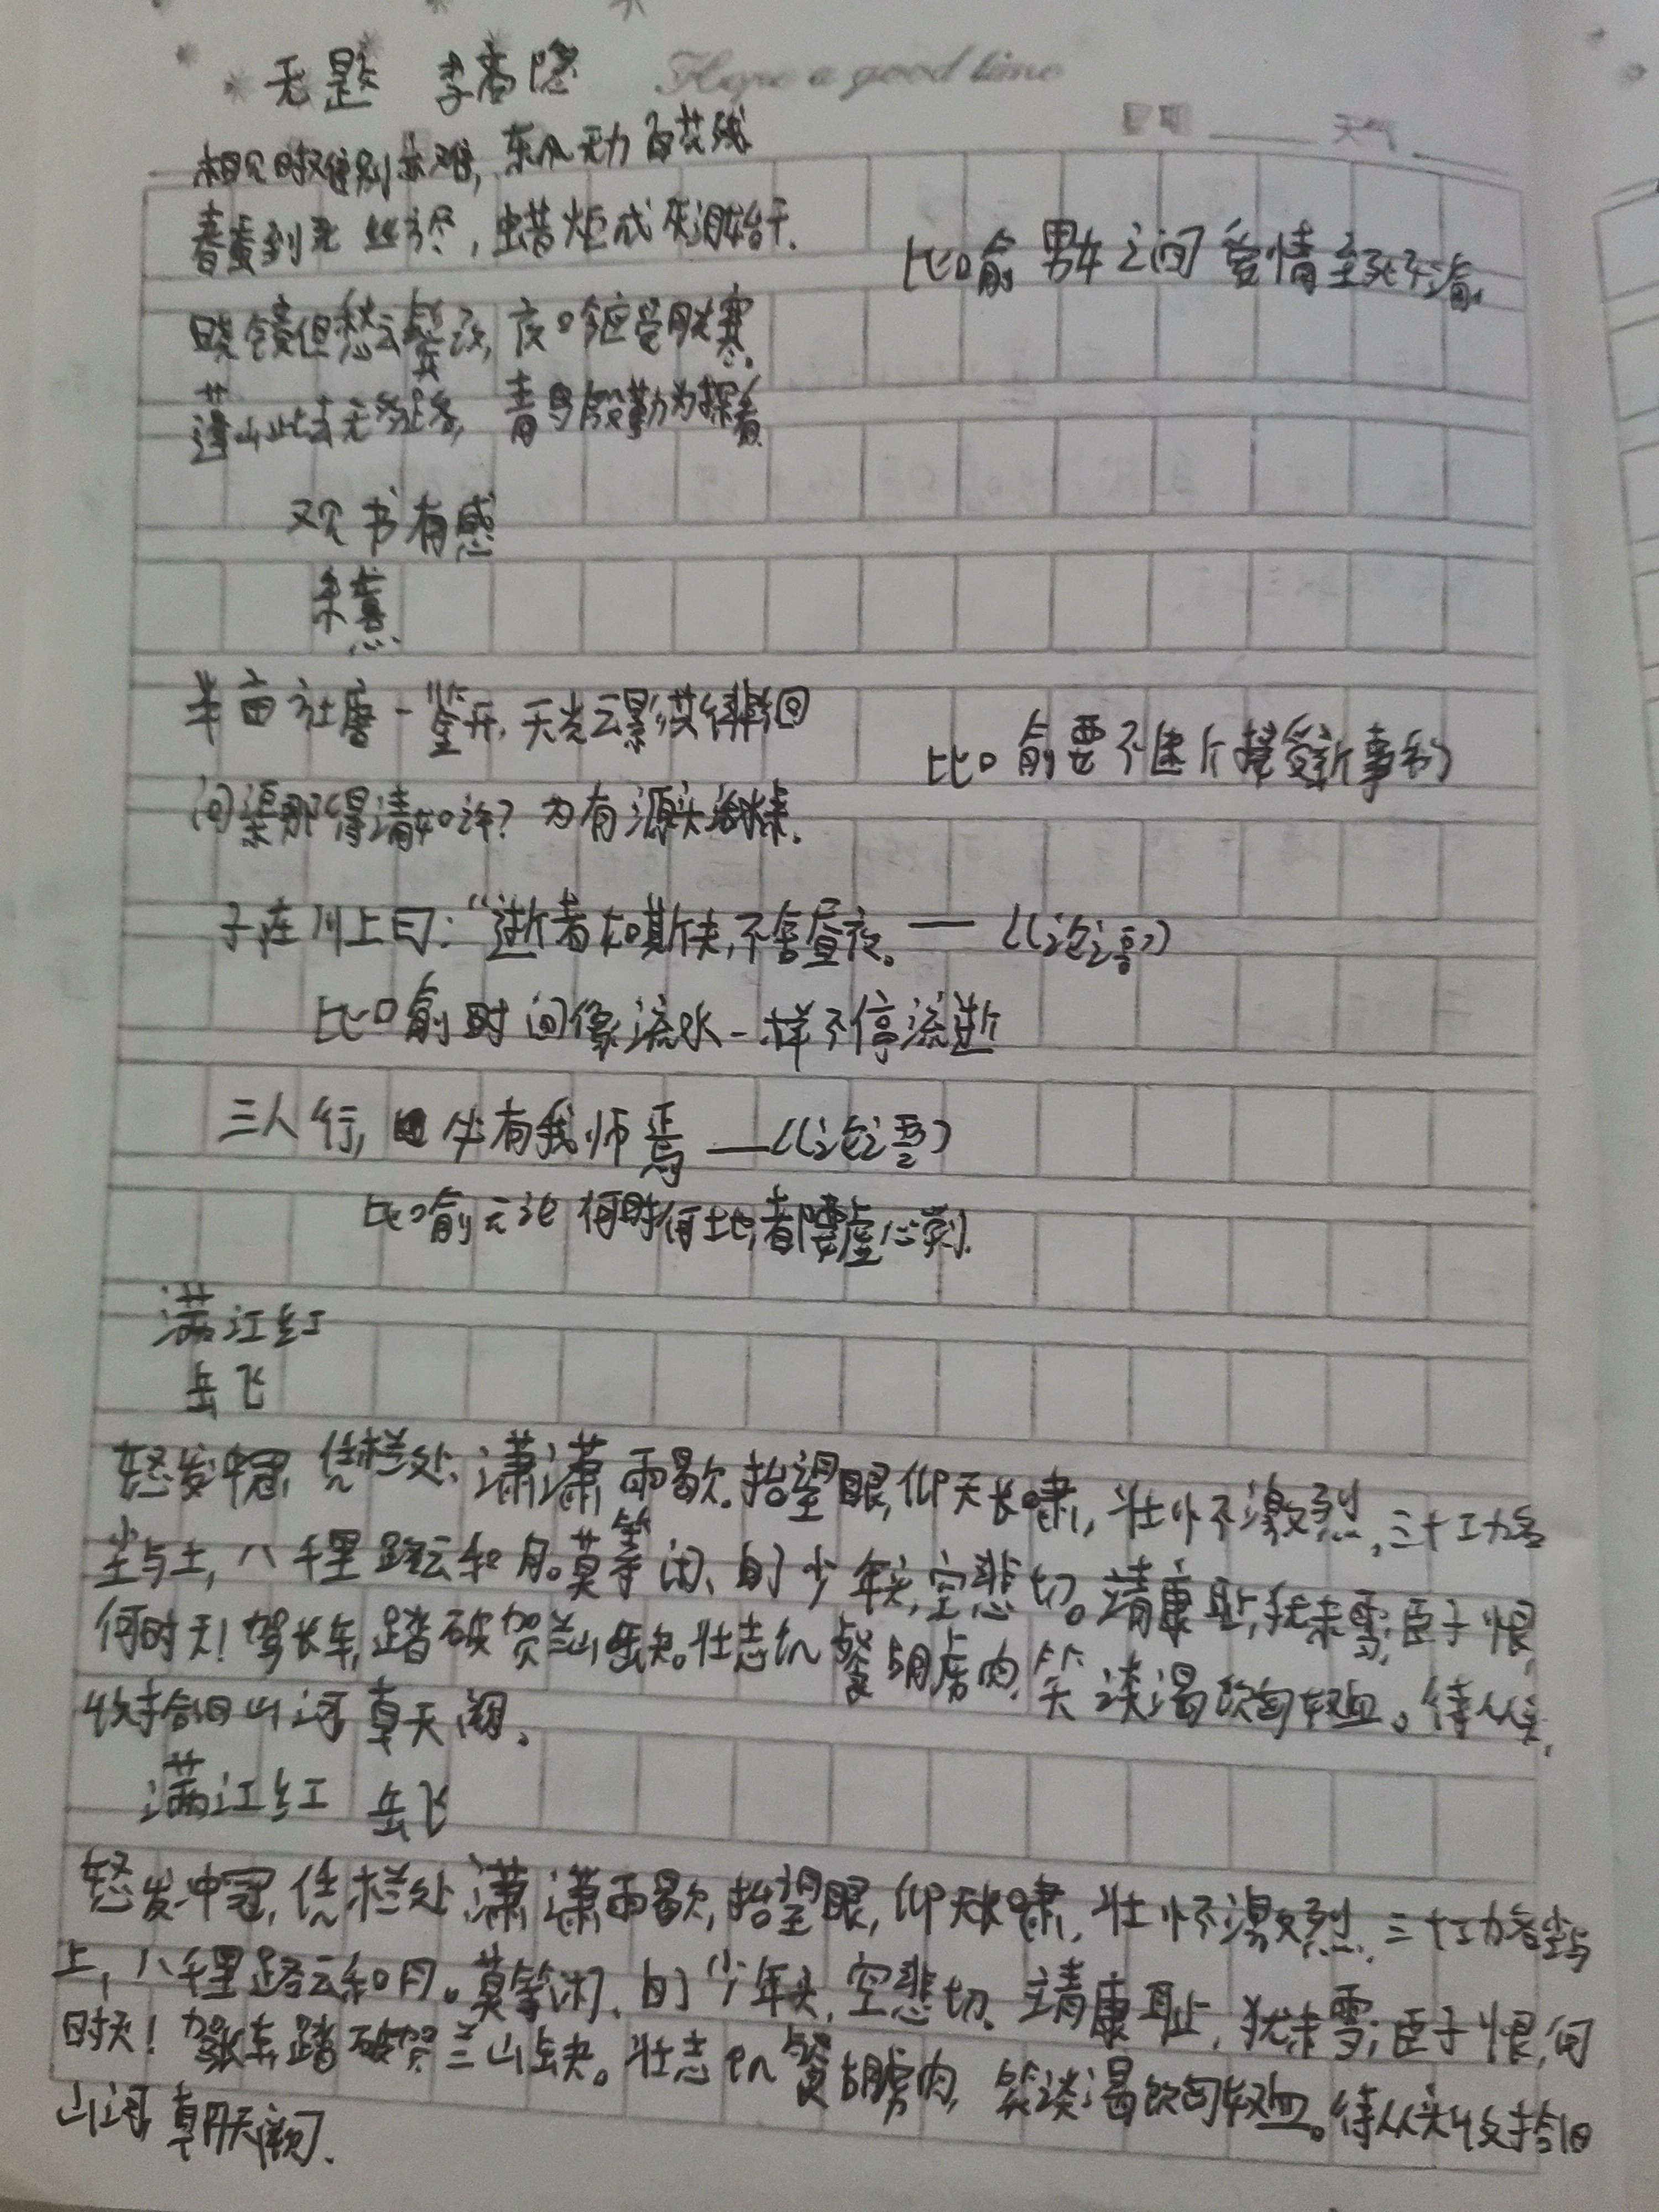 无题 李商隐
Hope a good time
星期 天气
相见时难别亦难,东风无力百花残
春蚕到死丝方尽,蜡炬成灰泪始干.
比喻男女之间爱情至死不渝.
晓镜但愁云鬓改,夜吟应觉月光寒.
蓬山此去无多路,青鸟殷勤为探看.
观书有感
朱熹
半亩方塘一鉴开,天光云影共徘徊
比喻要不断接受新事物
问渠那得清如许?为有源头活水来.
子在川上曰:“逝者如斯夫,不舍昼夜。——《论语》
比喻时间像流水一样不停流逝
三人行,必有我师焉——《论语》
比喻无论何时何地,都要虚心学习.
满江红
岳飞
怒发冲冠,凭栏处、潇潇雨歇.抬望眼,仰天长啸,壮怀激烈,三十功名
尘与土,八千里路云和月。莫等闲、白了少年头,空悲切。靖康耻,犹未雪;臣子恨,
何时灭!驾长车,踏破贺兰山缺。壮志饥餐胡虏肉,笑谈渴饮匈奴血。待从头,
收拾旧山河朝天阙.
满江红 岳飞
怒发冲冠,凭栏处、潇潇雨歇,抬望眼,仰天长啸,壮怀激烈.三十功名尘与
土,八千里路云和月。莫等闲、白了少年头,空悲切.靖康耻,犹未雪;臣子恨,何
时灭!驾长车,踏破贺兰山缺。壮志饥餐胡虏肉,笑谈渴饮匈奴血。待从头收拾旧
山河,朝天阙.